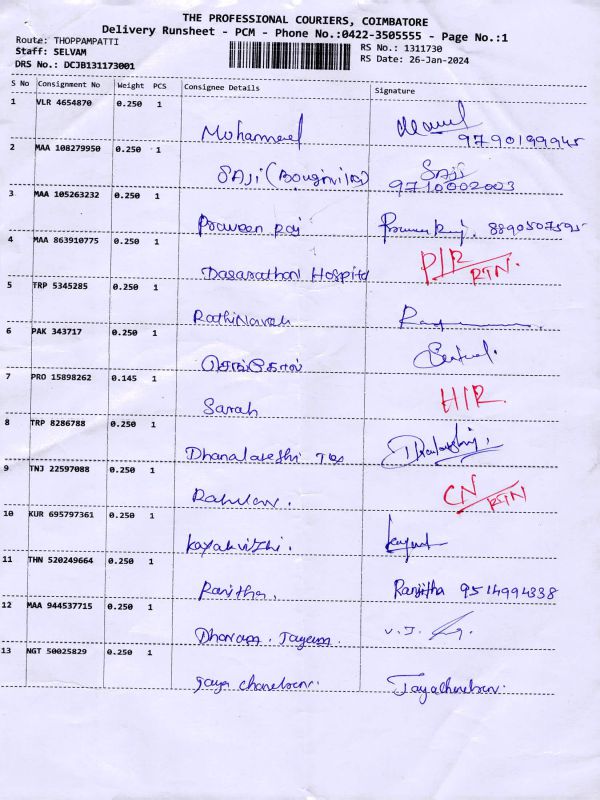 THE PROFESSIONAL COURIERS, COIMBATORE
Delivery Runsheet - PCM - Phone No.:0422-3505555 - Page No.:1
Route: THOPPAMPATTI
RS No.: 1311730
Staff: SELVAM
RS Date: 26-Jan-2024
DRS No.: DCJB131173001
S No Consignment No Weight PCS Consignee Details Signature
1 VLR 4654870 0.250 1
Mohammed
9790199945
2 MAA 108279950 0.250 1
SAJi (Bouginvilla) SAJi
9710002003
3 MAA 105263232 0.250 1
Praveen raj 8890507595
4 MAA 863910775 0.250 1
Dasarathan Hospital P/R RTN.
5 TRP 5345285 0.250 1
6 PAK 343717 0.250 1
செங்கோல் Sentul.
7 PRO 15898262 0.145 1
Sarah H/R.
8 TRP 8286788 0.250 1
Dhanalakshmi Tex
9 TNJ 22597088 0.250 1
CN RTN
10 KUR 695797361 0.250 1
Kayalvizhi.
11 THN 520249664 0.250 1
Ranjitha. Ranjitha 9514994338
12 MAA 944537715 0.250 1
V.J.
13 NGT 50025829 0.250 1
Jaya chandran. Jayachandran.